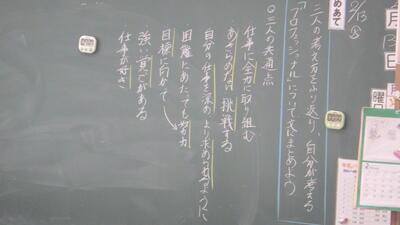 2/13
めあて
二人の考え方をふり返り、自分が考える
「プロフェッショナル」について文にまとめよう
○三人の共通点
仕事に全力に取り組む
あきらめない 挑戦する
自分の仕事を深め より求められるように
困難にあたっても努力
目標に向かて
強い気もちがある
仕事が好き
月
日
曜